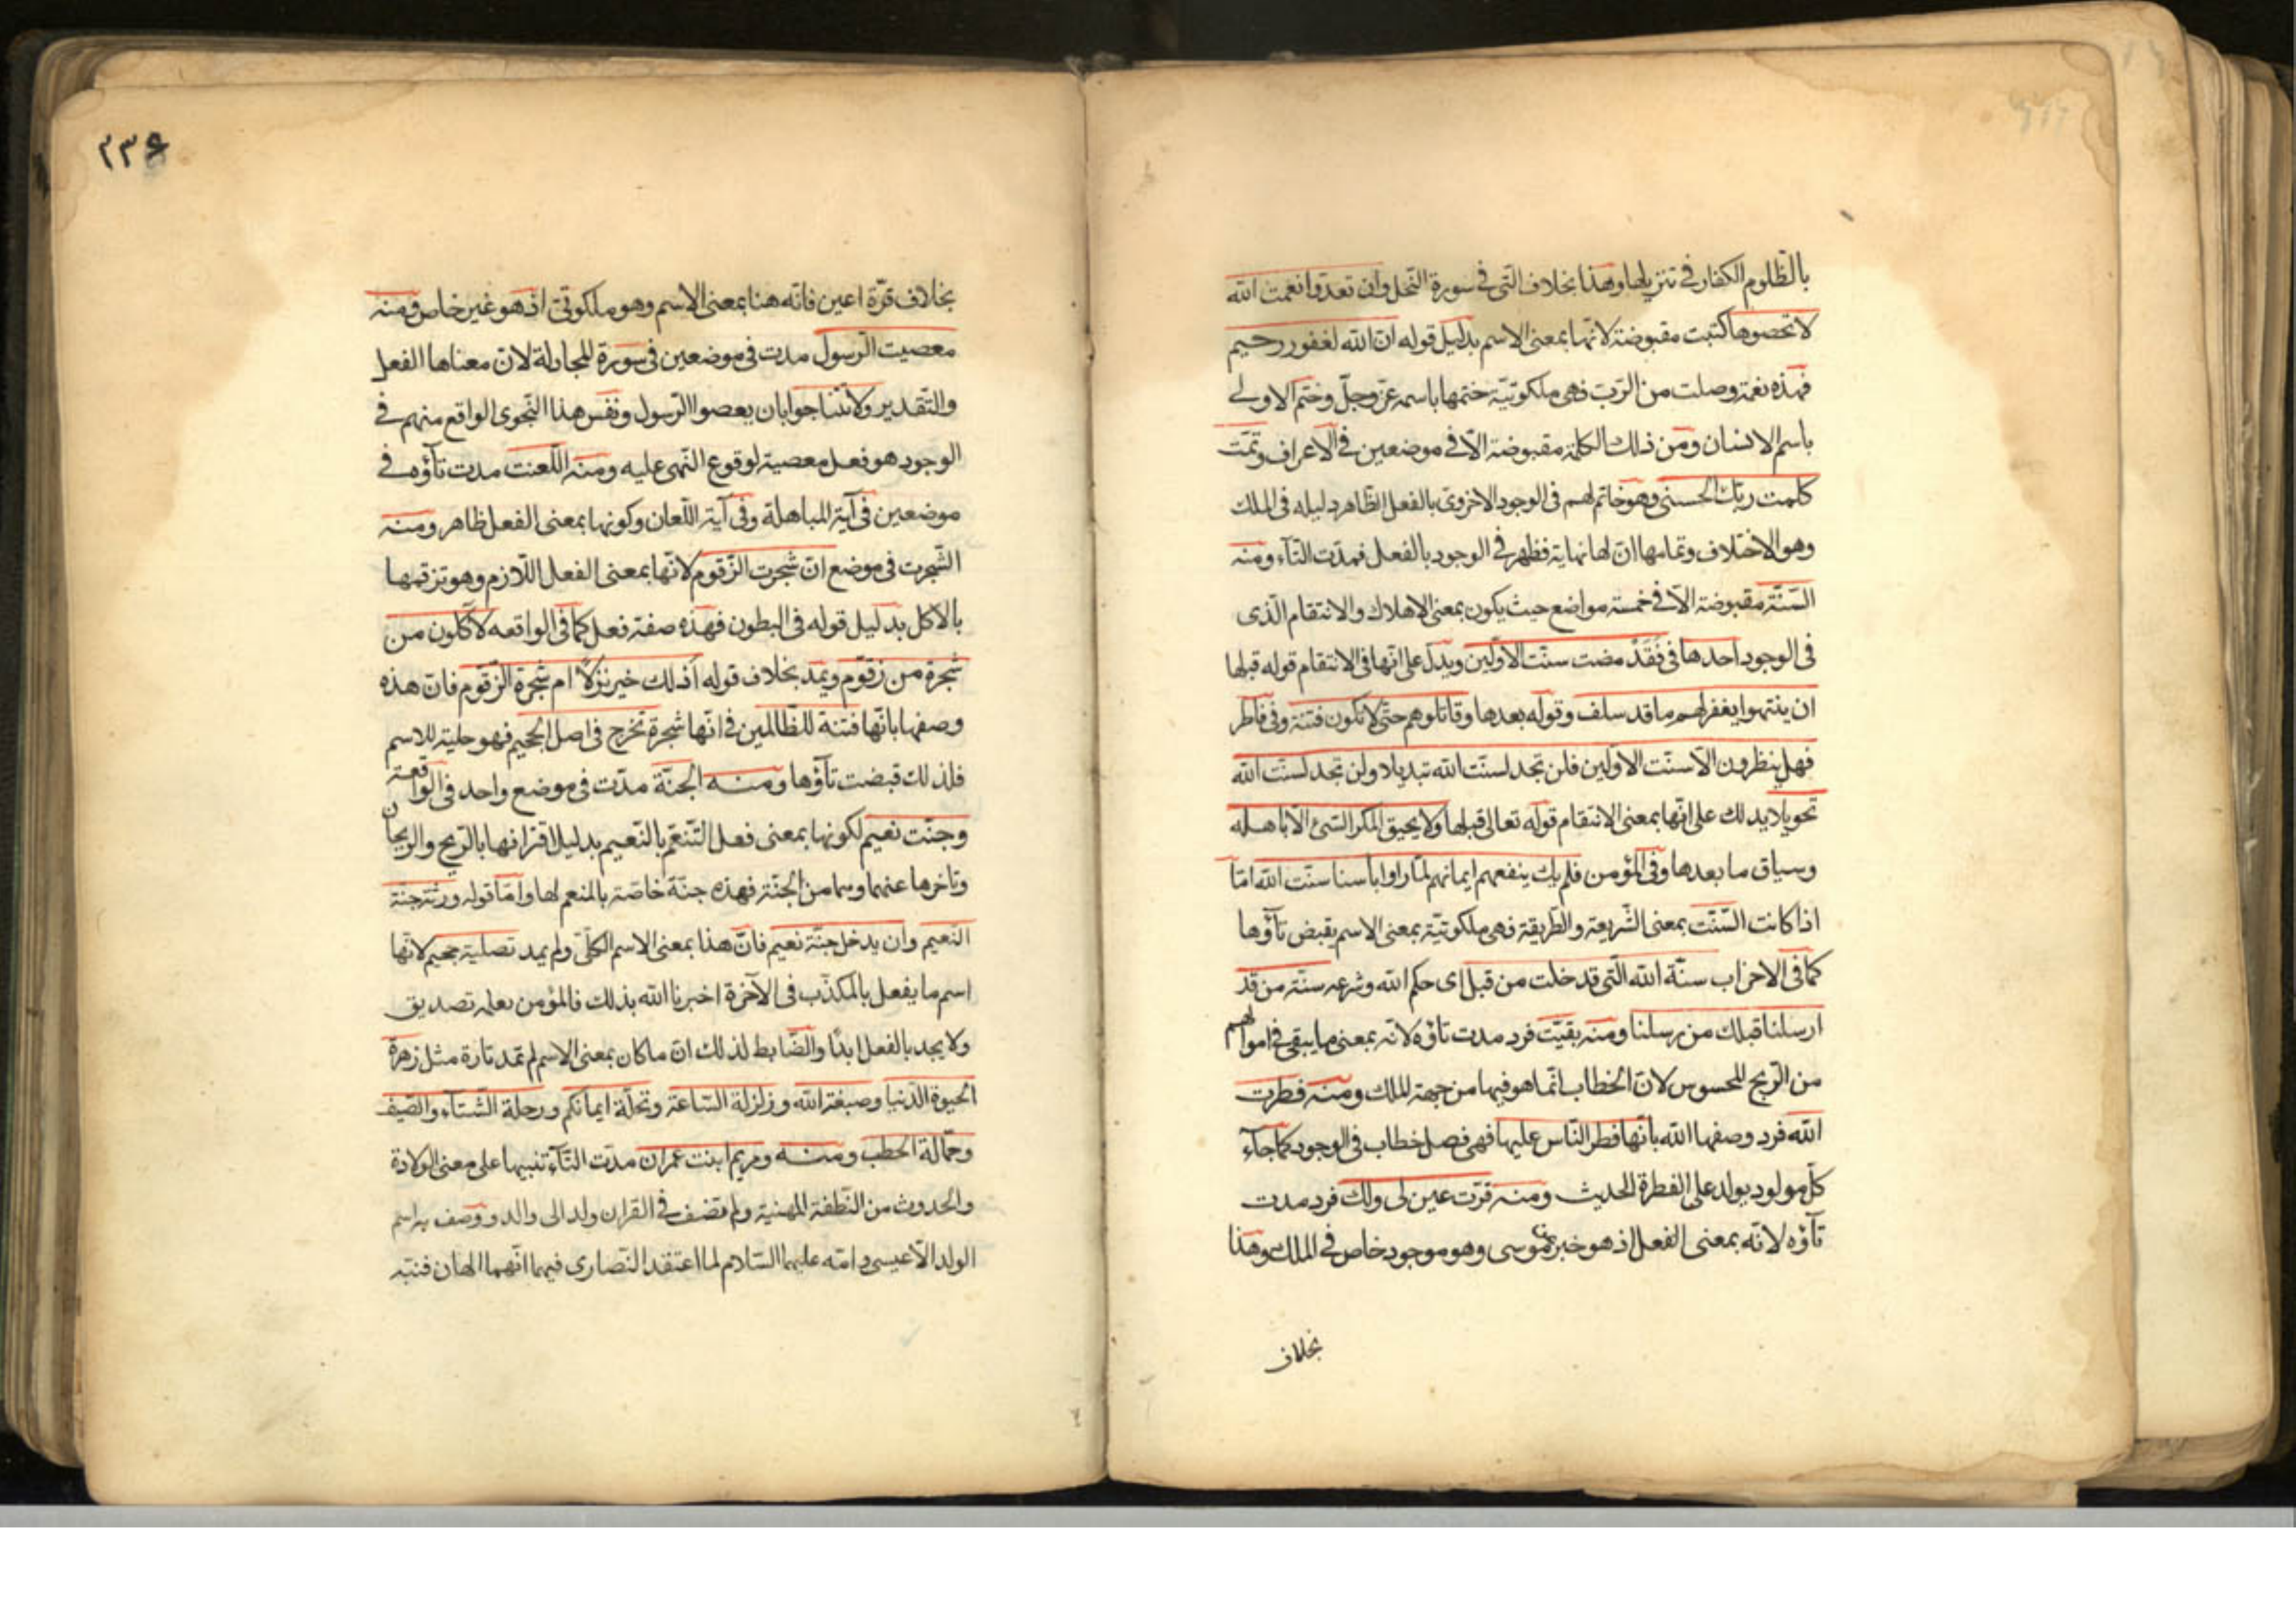 بالظلوم الكفار في تنزيلها وهذا بخلاف التى فى سورة النحل وان تعدوا نعمت الله
لا تحصوها كتبت مقبوضة لانها بمعنى الاسم بدليل قوله ان الله لغفور رحيم
فهذه نعمة وصلت من الرب فهى ملكوتية ختمها باسمه عز وجل وختم الاولى
باسم الانسان ومن ذلك الكلمة مقبوضة الا فى موضعين فى الاعراف وتمت
كلمت ربك الحسنى وهو خاتم لهم فى الوجود الاخروى بالفعل الظاهر دليله فى الملك
وهو الاختلاف وتمامها ان لها نهاية فظهر فى الوجود بالفعل فمدت التاء ومنه
السنة مقبوضة الا فى خمسة مواضع حيث يكون بمعنى الاهلاك والانتقام الذى
فى الوجود احدها فى فَقَدْ مضت سنت الاولين ويدل على انها فى الانتقام قوله قبلها
ان ينتهوا يغفر لهم ما قد سلف وقوله بعدها وقاتلوهم حتى لا تكون فتنة وفى فاطر
فهل ينظرون الا سنت الاولين فلن تجد لسنت الله تبديلا ولن تجد لسنت الله
تحويلا يدلك على انها بمعنى الانتقام قوله تعالى قبلها ولا يحيق المكر السئ الا باهله
وسياق ما بعدها وفى المؤمن فلم يك ينفعهم ايمانهم لما راوا باسنا سنت الله اما
اذا كانت السنت بمعنى الشريعة والطريقة فهى ملكوتية بمعنى الاسم يقبض تاؤها
كما فى الاحزاب سنة الله التى قد خلت من قبل اى حكم الله وشرعه سنة من قد
ارسلنا قبلك من رسلنا ومنه بقيت فرد مدت تاؤه لانه بمعنى ما يبقى فى اموالهم
من الربح المحسوس لان الخطاب انما هو فيها من جهة الملك ومنه فطرت
الله فرد وصفها الله بانها فطر الناس عليها فهى فصل خطاب فى الوجود كما جاء
كل مولود يولد على الفطرة الحديث ومنه قرت عين لى ولك فرد مدت
تاؤه لانه بمعنى الفعل اذ هو خبر عن موسى وهو موجود خاص فى الملك وهذا
بخلاف
٢٣٤
بخلاف قرة اعين فانه هنا بمعنى الاسم وهو ملكوتى اذ هو غير خاص ومنه
معصيت الرسول مدت فى موضعين فى سورة المجادلة لان معناها الفعل
والتقدير ولا تتناجوا بان يعصوا الرسول ونفس هذا النجوى الواقع منهم فى
الوجود هو فعل معصية لوقوع النهى عليه ومنه اللعنت مدت تاؤه فى
موضعين فى آية المباهلة وفى آية اللعان وكونها بمعنى الفعل ظاهر ومنه
الشجرت فى موضع ان شجرت الزقوم لانها بمعنى الفعل اللازم وهو تزقمها
بالاكل بدليل قوله فى البطون فهذه صفة فعل كما فى الواقعه لآكلون من
شجرة من زقوم ويمد بخلاف قوله أذلك خير نزلاً ام شجرة الزقوم فان هذه
وصفها بانها فتنة للظالمين فى انها شجرة تخرج فى اصل الجحيم فهو حلية للاسم
فلذلك قبضت تاؤها ومنه الجنة مدت فى موضع واحد فى الواقعة
وجنت نعيم لكونها بمعنى فعل التنعم بالنعيم بدليل اقترانها بالروح والريحان
وتاخرها عنهما وهما من الجنة فهذه جنة خاصة بالمنعم لها واما قوله ورثة جنة
النعيم وان يدخل جنة نعيم فان هذا بمعنى الاسم الكلى ولم يمد تصلية جحيم لانها
اسم ما يفعل بالمكذب فى الآخرة اخبرنا الله بذلك فالمؤمن يعلمه تصديق
ولا يجد بالفعل ابدًا والضابط لذلك ان ما كان بمعنى الاسم لم تمد تارة مثل زهرة
الحيوة الدنيا وصبغة الله وزلزلة الساعة وتحلة ايمانكم ورحلة الشتاء والصيف
وحمالة الحطب ومنه ومريم ابنت عمران مدت التاء تنبيها على معنى الولادة
والحدوث من النطفة المهنية ولم تضف فى القران ولد الى والد ووصف به اسم
الولد الا عيسى وامه عليهما السلام لما اعتقد النصارى فيهما انهما الهان فنبه